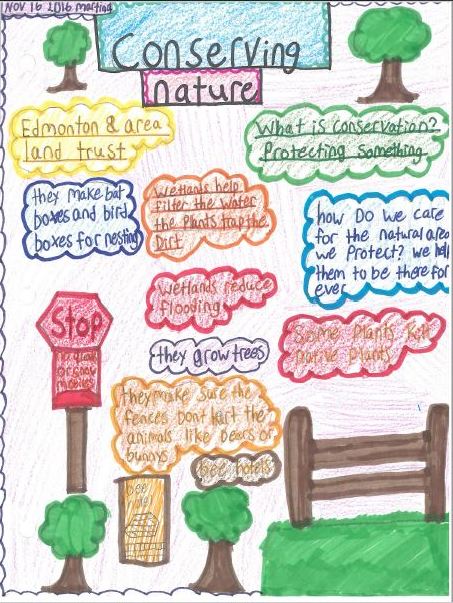 NOV 16 2016 martina
Conserving
nature
Edmonton & area
land trust
What is conservation?
Protecting something
they make bat
boxes and bird
boxes for nesting
Wetlands help
Filter the Water
the Plants trap the
Dirt
how Do we care
for the natural area
we Protect? we hell
them to be there for
ever
Wetlands reduce
flooding
Stop
they grow trees
Some Plants
native plants
they make sure the
fences Dont hurt the
animals like Dears or
bunnys
bee hotels
bee